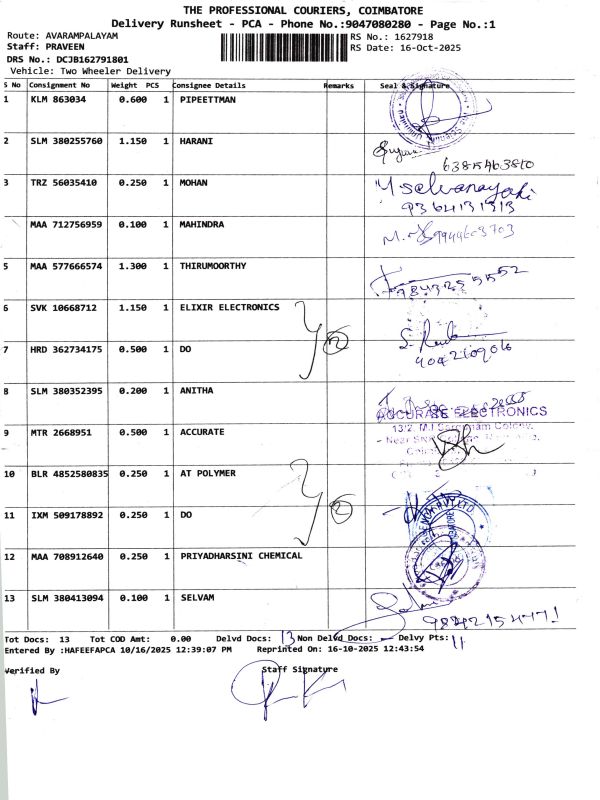 THE PROFESSIONAL COURIERS, COIMBATORE
Delivery Runsheet - PCA - Phone No.:9047080280 - Page No.:1
Route: AVARAMPALAYAM
RS No.: 1627918
Staff: PRAVEEN
RS Date: 16-Oct-2025
DRS No.: DCJB162791801
Vehicle: Two Wheeler Delivery
S No Consignment No Weight PCS Consignee Details Remarks Seal & Signature
1 KLM 863034 0.600 1 PIPEETTMAN
2 SLM 380255760 1.150 1 HARANI
6385463810
3 TRZ 56035410 0.250 1 MOHAN M selvanayaki
9364131313
MAA 712756959 0.100 1 MAHINDRA 9944603703
5 MAA 577666574 1.300 1 THIRUMOORTHY
9843255552
6 SVK 10668712 1.150 1 ELIXIR ELECTRONICS
7 HRD 362734175 0.500 1 DO 2
8 SLM 380352395 0.200 1 ANITHA
ACCURATE ELECTRONICS
9 MTR 2668951 0.500 1 ACCURATE
10 BLR 4852580835 0.250 1 AT POLYMER
11 IXM 509178892 0.250 1 DO 2
12 MAA 708912640 0.250 1 PRIYADHARSINI CHEMICAL
13 SLM 380413094 0.100 1 SELVAM
9842215471
Tot Docs: 13 Tot COD Amt: 0.00 Delvd Docs: 13 Non Delvd Docs: - Delvy Pts: 11
Entered By :HAFEEFAPCA 10/16/2025 12:39:07 PM Reprinted On: 16-10-2025 12:43:54
Verified By Staff Signature